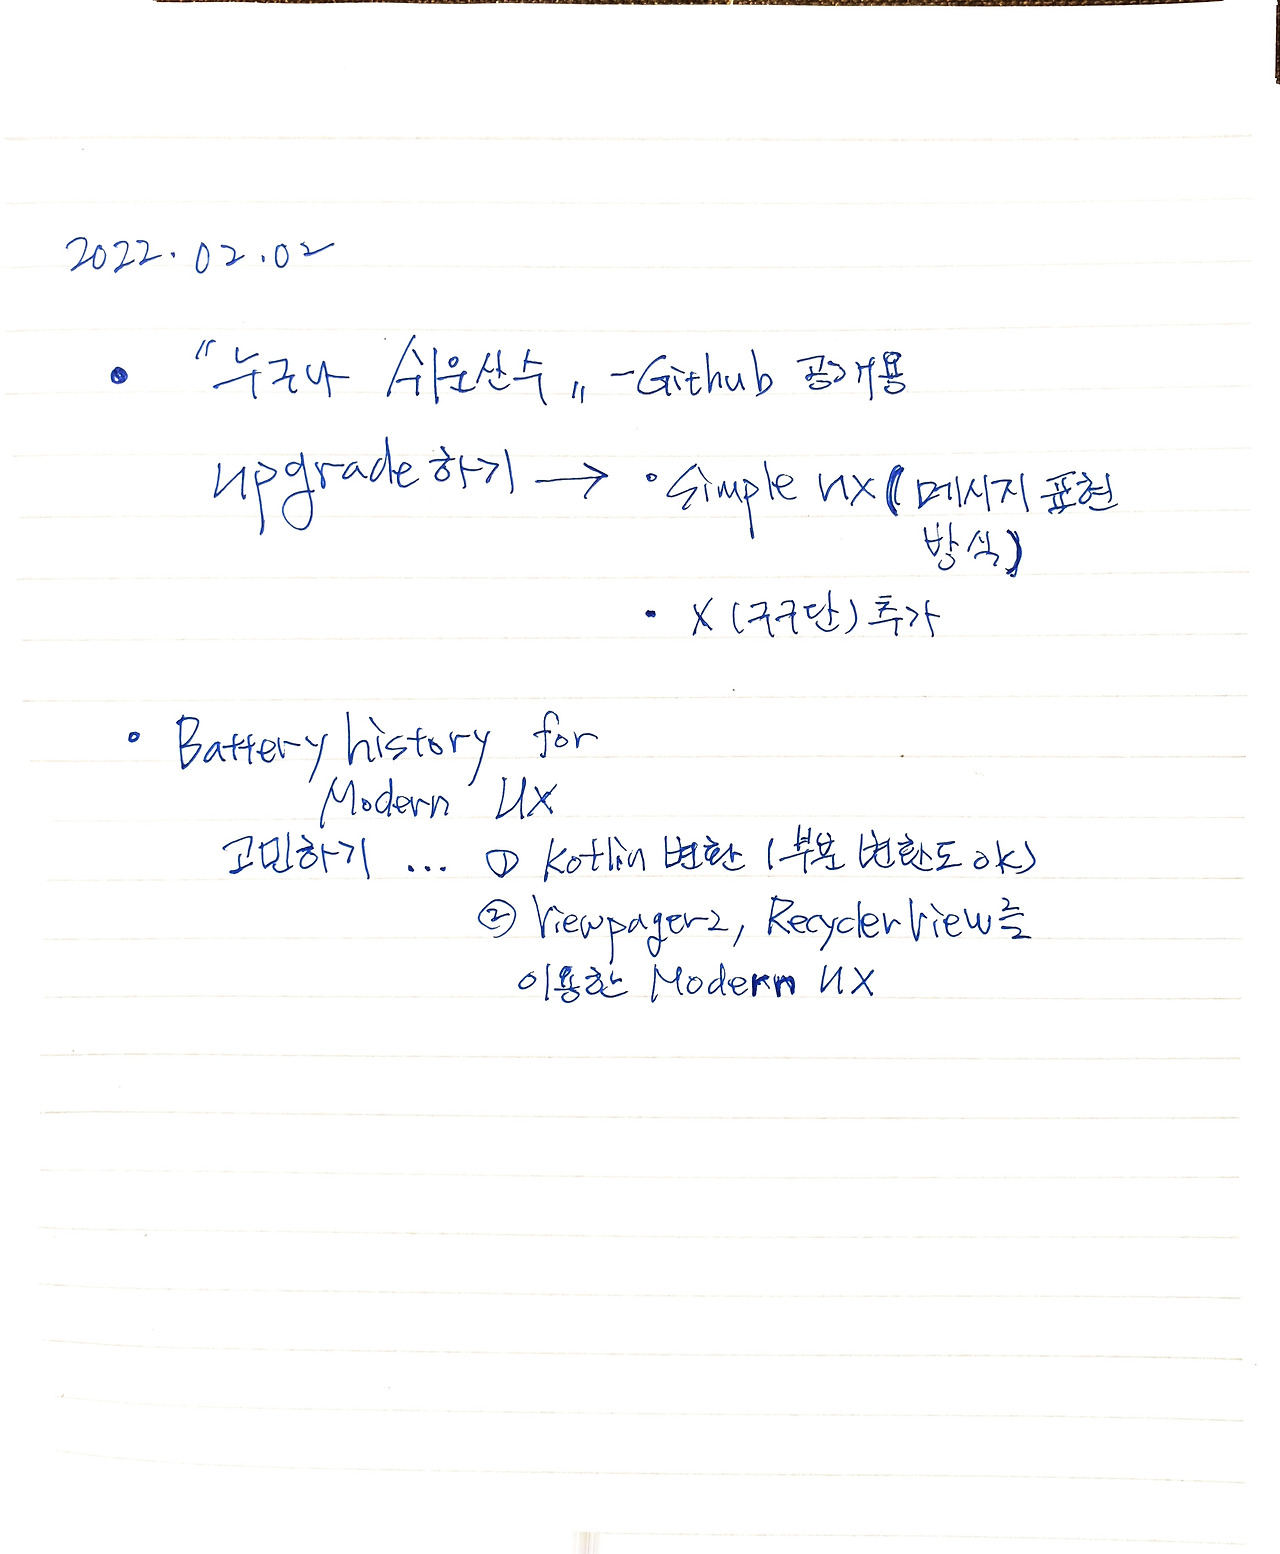 2022.02.02
• "누구나 쉬운산수" - Github 공개용
upgrade 하기 → • Simple UX (메시지 표현
방식)
• X (구구단) 추가
• Battery history for
Modern UX
고민하기 ... ① Kotlin 변환 (부분 변환도 OK)
② Viewpager2, RecyclerView를
이용한 Modern UX